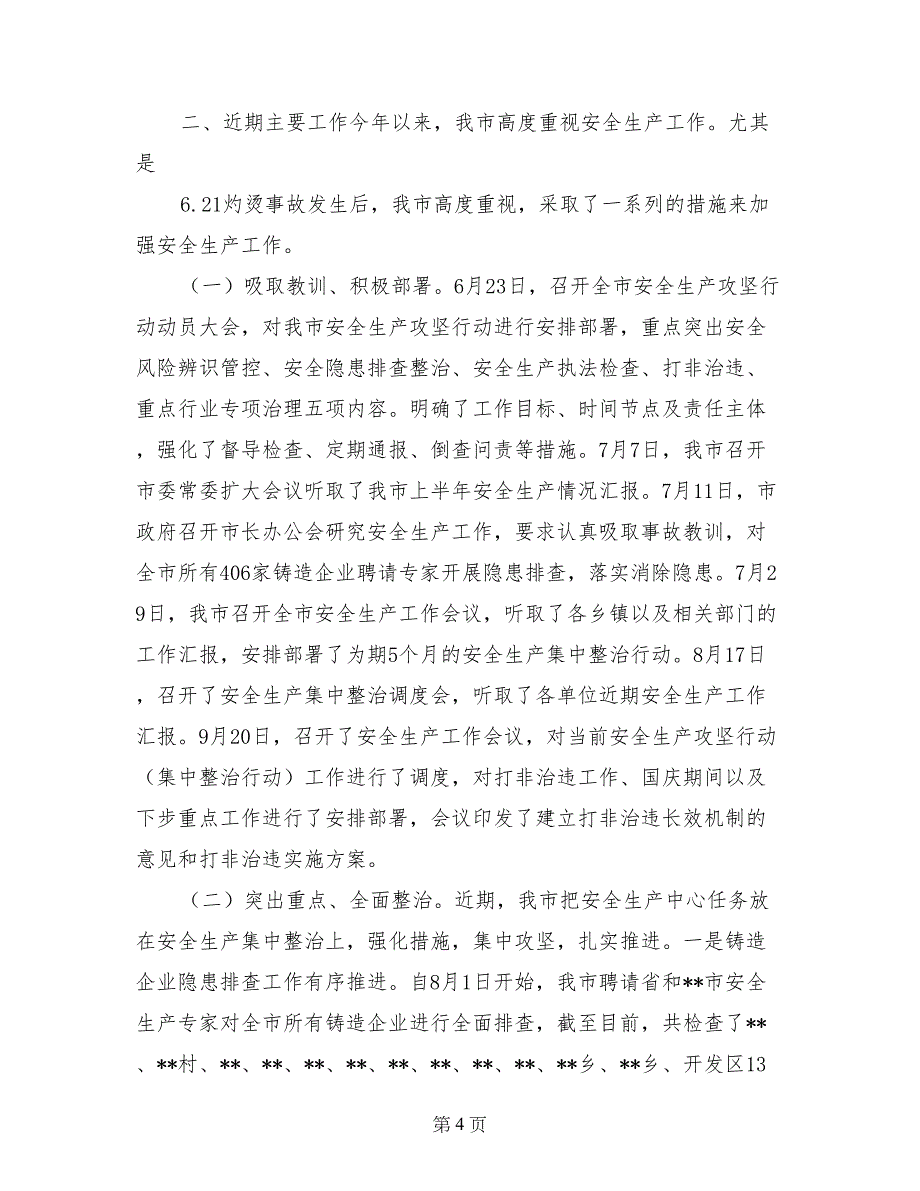 二、近期主要工作今年以来，我市高度重视安全生产工作。尤其
是
6.21灼烫事故发生后，我市高度重视，采取了一系列的措施来加
强安全生产工作。
（一）吸取教训、积极部署。6月23日，召开全市安全生产攻坚行
动动员大会，对我市安全生产攻坚行动进行安排部署，重点突出安全
风险辨识管控、安全隐患排查整治、安全生产执法检查、打非治违、
重点行业专项治理五项内容。明确了工作目标、时间节点及责任主体
，强化了督导检查、定期通报、倒查问责等措施。7月7日，我市召开
市委常委扩大会议听取了我市上半年安全生产情况汇报。7月11日，市
政府召开市长办公会研究安全生产工作，要求认真吸取事故教训，对
全市所有406家铸造企业聘请专家开展隐患排查，落实消除隐患。7月2
9日，我市召开全市安全生产工作会议，听取了各乡镇以及相关部门的
工作汇报，安排部署了为期5个月的安全生产集中整治行动。8月17日
，召开了安全生产集中整治调度会，听取了各单位近期安全生产工作
汇报。9月20日，召开了安全生产工作会议，对当前安全生产攻坚行动
（集中整治行动）工作进行了调度，对打非治违工作、国庆期间以及
下步重点工作进行了安排部署，会议印发了建立打非治违长效机制的
意见和打非治违实施方案。
（二）突出重点、全面整治。近期，我市把安全生产中心任务放
在安全生产集中整治上，强化措施，集中攻坚，扎实推进。一是铸造
企业隐患排查工作有序推进。自8月1日开始，我市聘请省和**市安全
生产专家对全市所有铸造企业进行全面排查，截至目前，共检查了**
、**村、**、**、**、**、**、**、**、**、**乡、**乡、开发区13
第 4 页